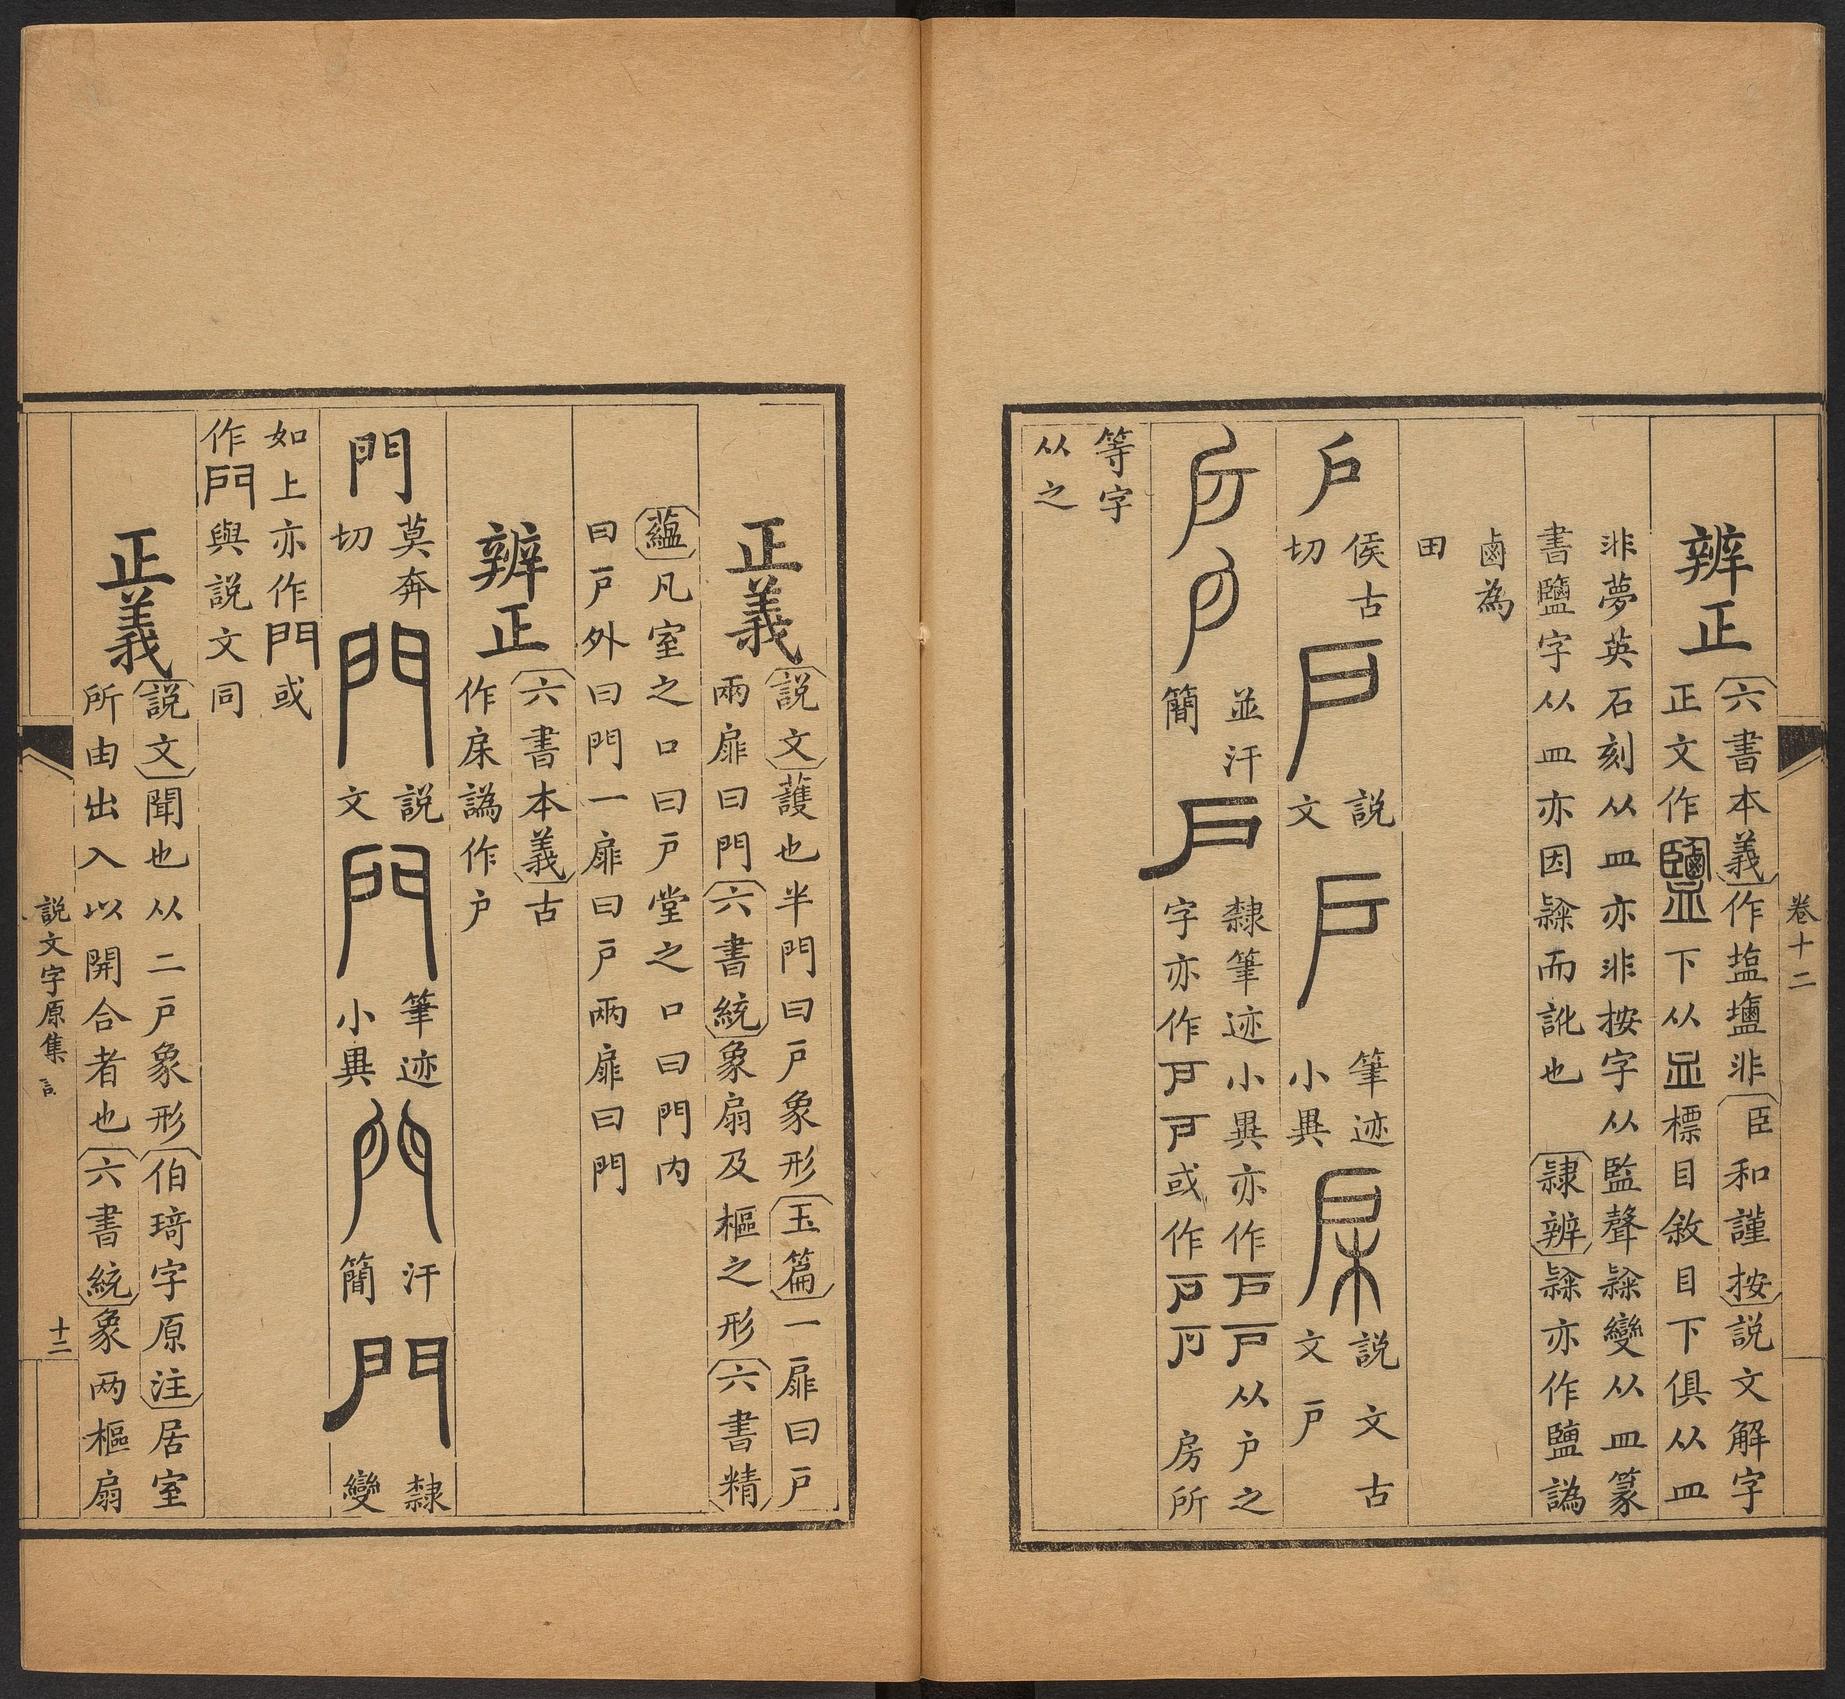 卷十二
辨正
六書本義作塩𡒉非臣和謹按説文解字
正文作鹽下从皿標目敘目下俱从皿
非夢英石刻从皿亦非按字从監聲隷變从皿篆
書鹽字从皿亦因隷而訛也隷辨隷亦作鹽譌
鹵為
田
戶
侯古
切
戶
説
文
戶
筆迹
小異
説文古
文戶
並汗
簡
戶
隸筆迹小異亦作戶戶从户之
字亦作戶戶或作戶戶房所
等字
从之
正義
説文護也半門曰戶象形玉篇一扉曰戶
兩扉曰門六書統象扇及樞之形六書精
蘊凡室之口曰戶堂之口曰門内
曰戶外曰門一扉曰戶兩扉曰門
辨正
六書本義古
作㦿譌作户
門
莫奔
切
門
説
文
門
筆迹
小異
門
汗
簡
門
隸
變
如上亦作門或
作門與説文同
正義
説文聞也从二戶象形伯琦字原注居室
所由出入以開合者也六書統象两樞扇
説文字原集
十二